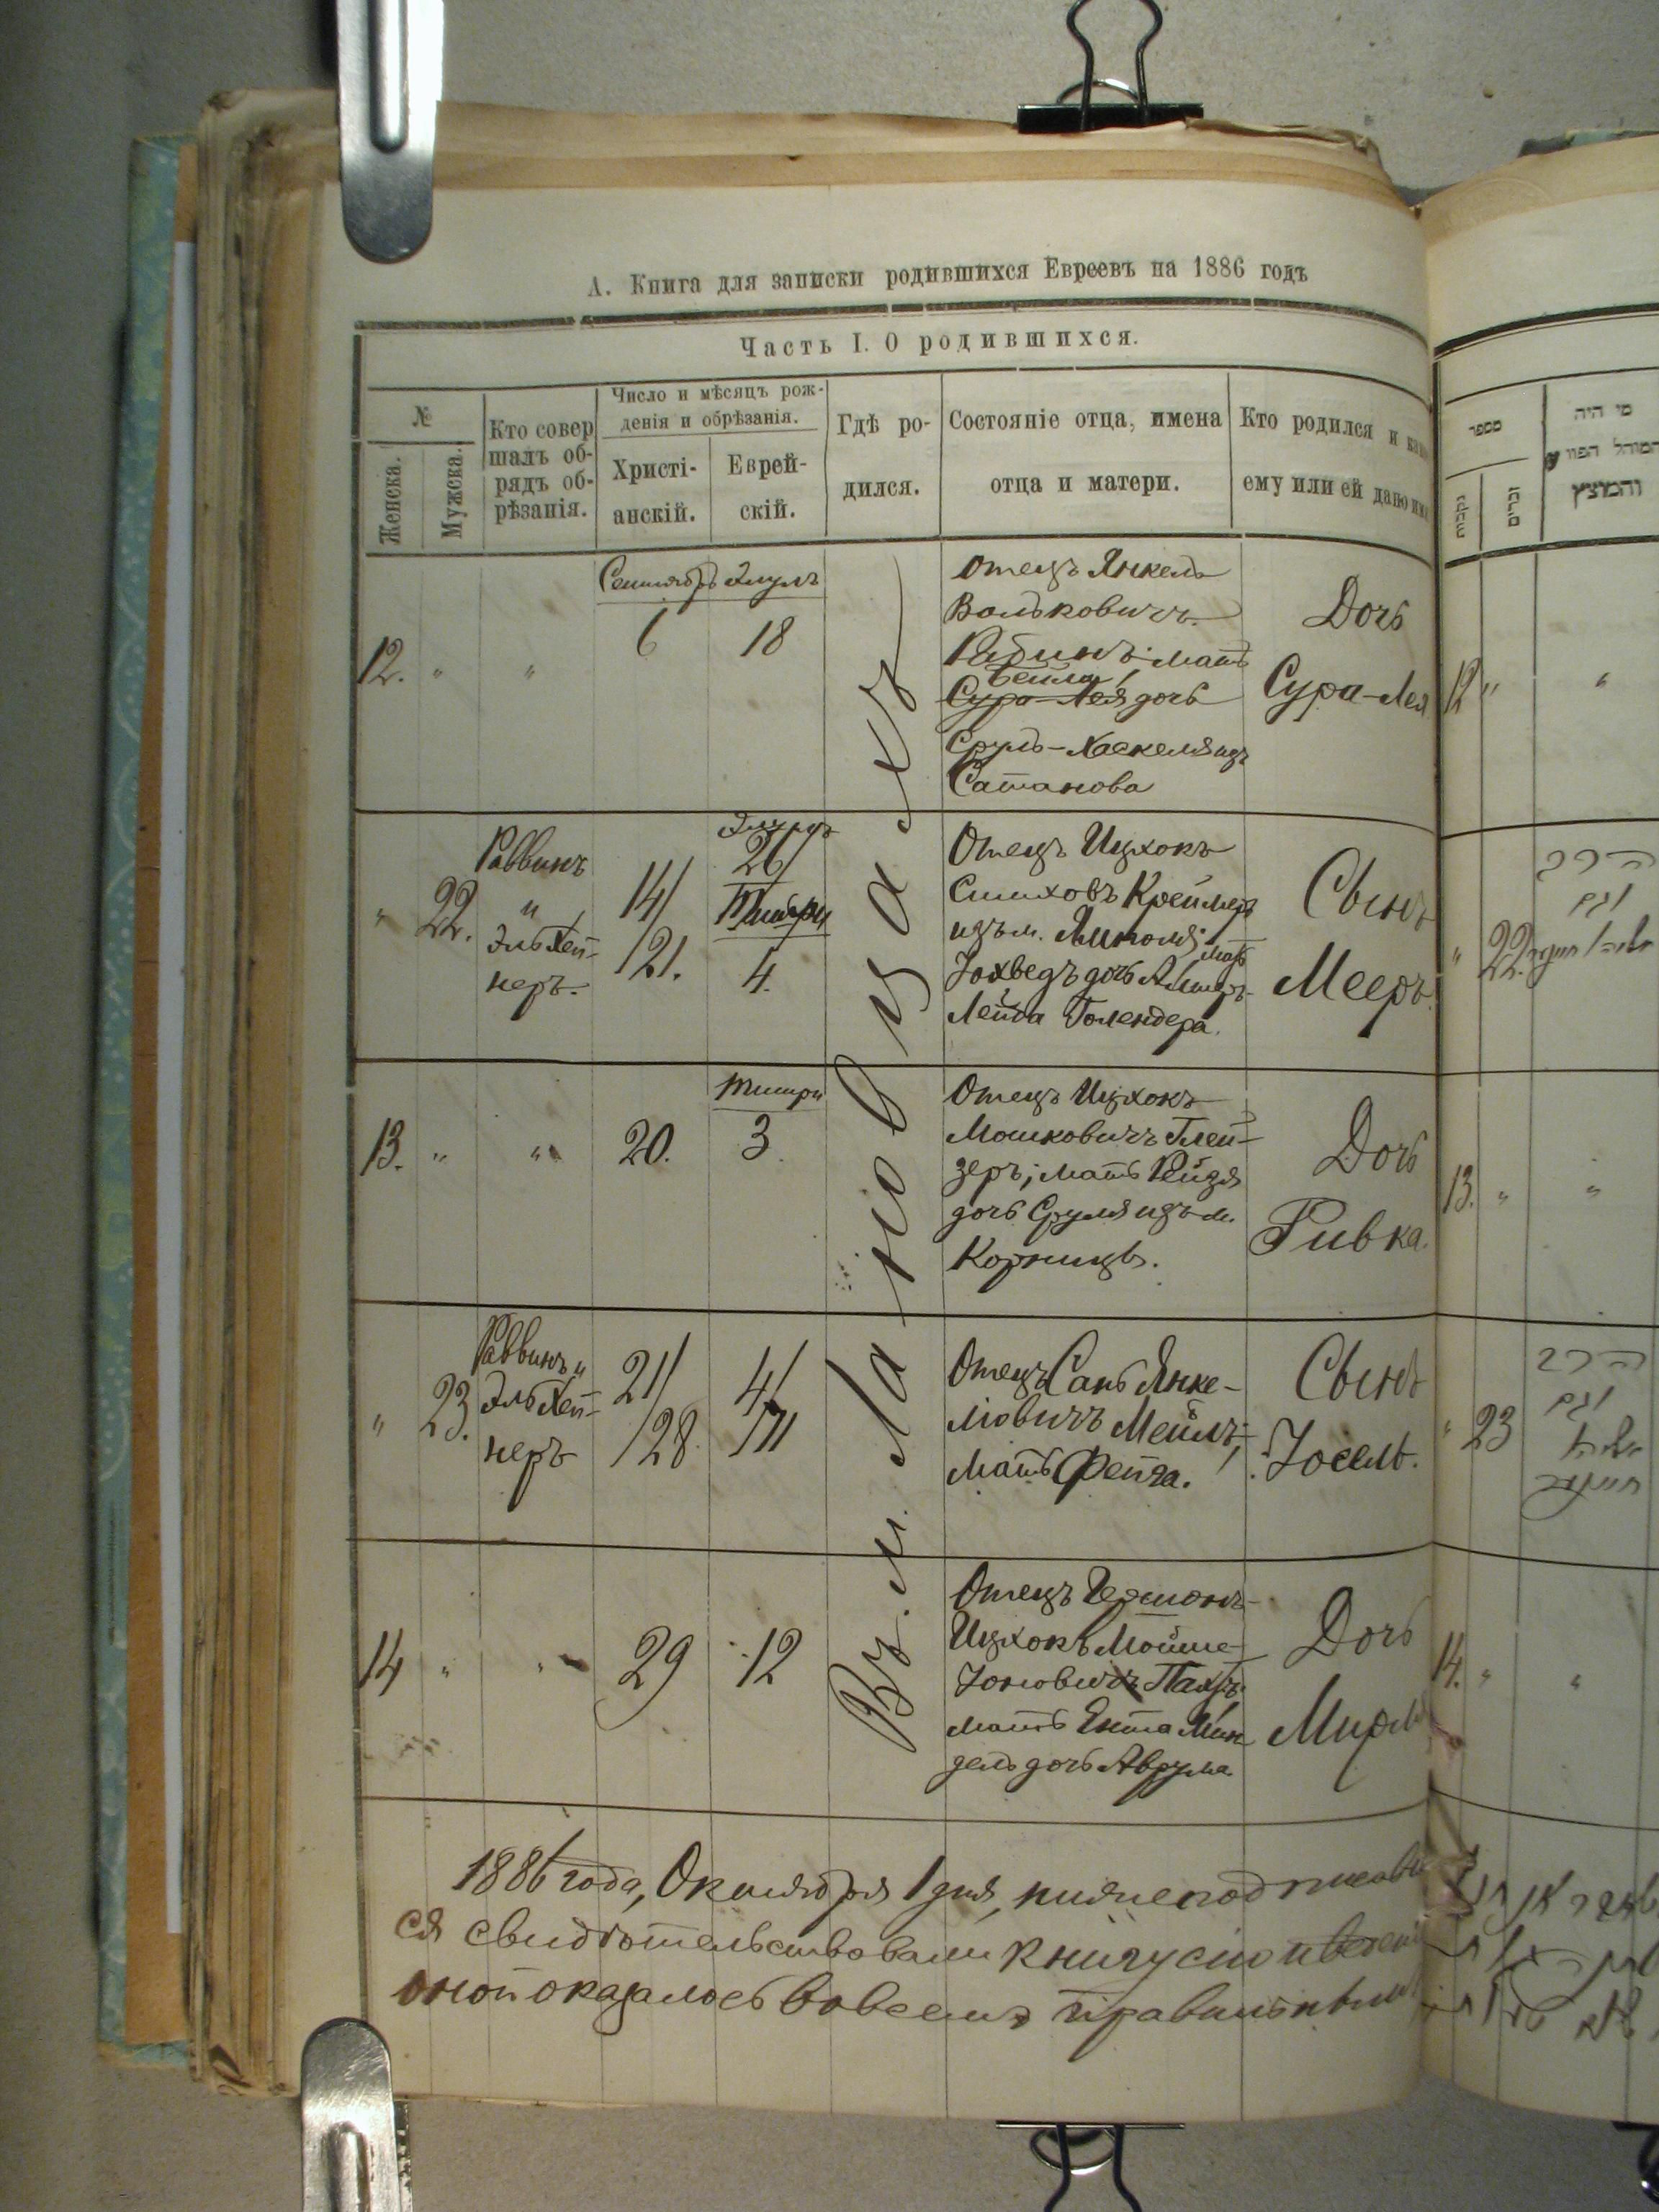 А. Книга для записки родившихся Евреевъ на 1886 годъ
Часть I. О родившихся.
№
Женска.
Мужска.
Кто совер
шалъ об-
рядъ об-
рѣзанія.
Число и мѣсяцъ рож-
денія и обрѣзанія.
Христі-
анскій.
Еврей-
скій.
Гдѣ ро-
дился.
Состояніе отца, имена
отца и матери.
Кто родился и како
ему или ей дано имя
Въ м. Лановцахъ
12. " "
Сентябрь Элулъ
6 18
Отецъ Янкель
Вольковичъ
Рабинъ; мать
Бейла
Сура-Лея дочь
Сруль-Хаскеля изъ
Сатанова
Дочь
Сура-Лея
" 22.
Раввинъ
"
Эль Хей-
неръ.
14/
/21.
Элулъ
26/
Тишри
4.
Отецъ Ицхокъ
Симховъ Креймеръ
изъ м. Ямполя; мать
Іохведъ дочь
Лейба Голендера.
Сынъ
Мееръ.
13. " "
20.
Тишри
3.
Отецъ Ицхокъ
Мошковичъ Глей-
зеръ; мать Рейзя
дочь Сруля изъ м.
Корницъ.
Дочь
Ривка.
" 23.
Раввинъ и
Эль Хей-
неръ
21/
/28.
4/
/11
Отецъ Янке-
лювичъ
мать Фейга.
Сынъ
Іосель.
14 " "
29 12
Отецъ Гершонъ-
Ицхокъ Мойше-
Іоновичъ
мать Ента Мин
дель дочь Аврума
Дочь
1886 года, Октября 1 дня,
ся свидѣтельствовали книгу сію и
оной оказалось во всемъ
מספר
נקבות
זכרים
מי היה
המוהל הפורע
והמוצץ
12 " "
" 22.
הרב
וגם
13. " "
" 23
הרב
וגם
14. " "